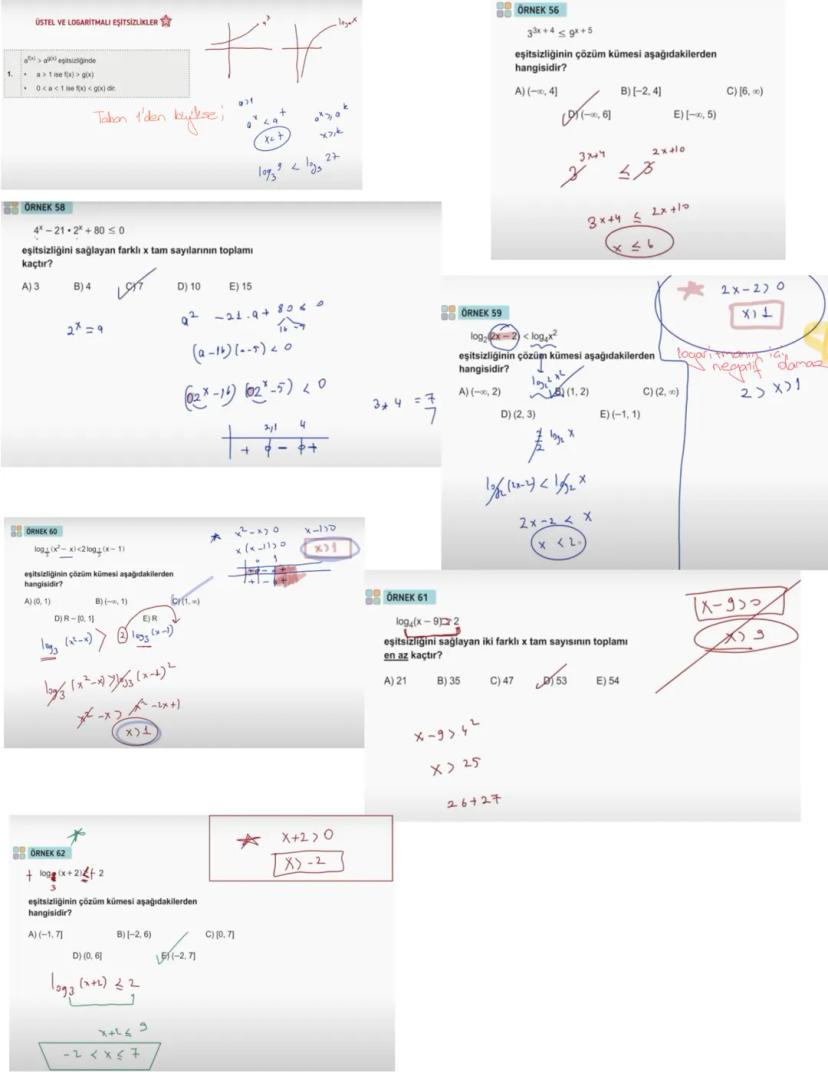 ÜSTEL VE LOGARİTMALI EŞİTSİZLİKLER
a^f(x) > a^g(x) eşitsizliğinde
1.
• a > 1 ise f(x) > g(x)
• 0 < a < 1 ise f(x) < g(x) dir.
a^x
log_a x
Taban 1'den büyükse;
a>1
a^x < a^7
x < 7
a^x ≥ a^k
x ≥ k
log₃ 9 < log₃ 27
ÖRNEK 56
3^(3x + 4) ≤ 9^(x + 5)
eşitsizliğinin çözüm kümesi aşağıdakilerden
hangisidir?
A) (–∞, 4] B) [–2, 4] C) [6, ∞)
D) (–∞, 6] E) [–∞, 5)
3^(3x+4) ≤ 3^(2x+10)
3x+4 ≤ 2x+10
x ≤ 6
ÖRNEK 58
4^x – 21 • 2^x + 80 ≤ 0
eşitsizliğini sağlayan farklı x tam sayılarının toplamı
kaçtır?
A) 3 B) 4 C) 7 D) 10 E) 15
2^x = a
a² - 21.a + 80 ≤ 0
(a-16) (a-5) < 0
2^x-16) 2^x-5) < 0
2,1 4
+ - +
3+4 = 7
7
ÖRNEK 59
log₂(2x – 2) < log₄x²
eşitsizliğinin çözüm kümesi aşağıdakilerden
hangisidir?
A) (–∞, 2) B) (1, 2) C) (2, ∞)
D) (2, 3) E) (–1, 1)
2x-2 > 0
x > 1
logaritmanın içi
negatif olamaz
2 > x > 1
log₂² x²
2/2 log₂ x
log₂ (2x-2) < log₂ x
2x-2 < x
x < 2
ÖRNEK 60
(x² – x) < 2log (x – 1)
eşitsizliğinin çözüm kümesi aşağıdakilerden
hangisidir?
A) (0, 1) B) (–∞, 1) C) (1, ∞)
D) R – [0, 1] E) R
x²-x > 0
x (x-1) > 0
x-1 > 0
x > 1
0 1
log₃ (x²-x) > 2 log₃ (x-1)
log₃ (x²-x) > log₃ (x-1)²
x² -x > x² -2x+1
x > 1
ÖRNEK 61
log₄(x – 9) > 2
eşitsizliğini sağlayan iki farklı x tam sayısının toplamı
en az kaçtır?
A) 21 B) 35 C) 47 D) 53 E) 54
x-9 > 0
x > 9
x-9 > 4²
x > 25
26+27
ÖRNEK 62
+ log (x + 2) ≤ + 2
3
eşitsizliğinin çözüm kümesi aşağıdakilerden
hangisidir?
A) (–1, 7] B) [–2, 6) C) [0, 7]
D) (0, 6] E) (–2, 7]
x+2 > 0
x > -2
log₃ (x+2) ≤ 2
x+2 ≤ 9
-2 < x ≤ 7